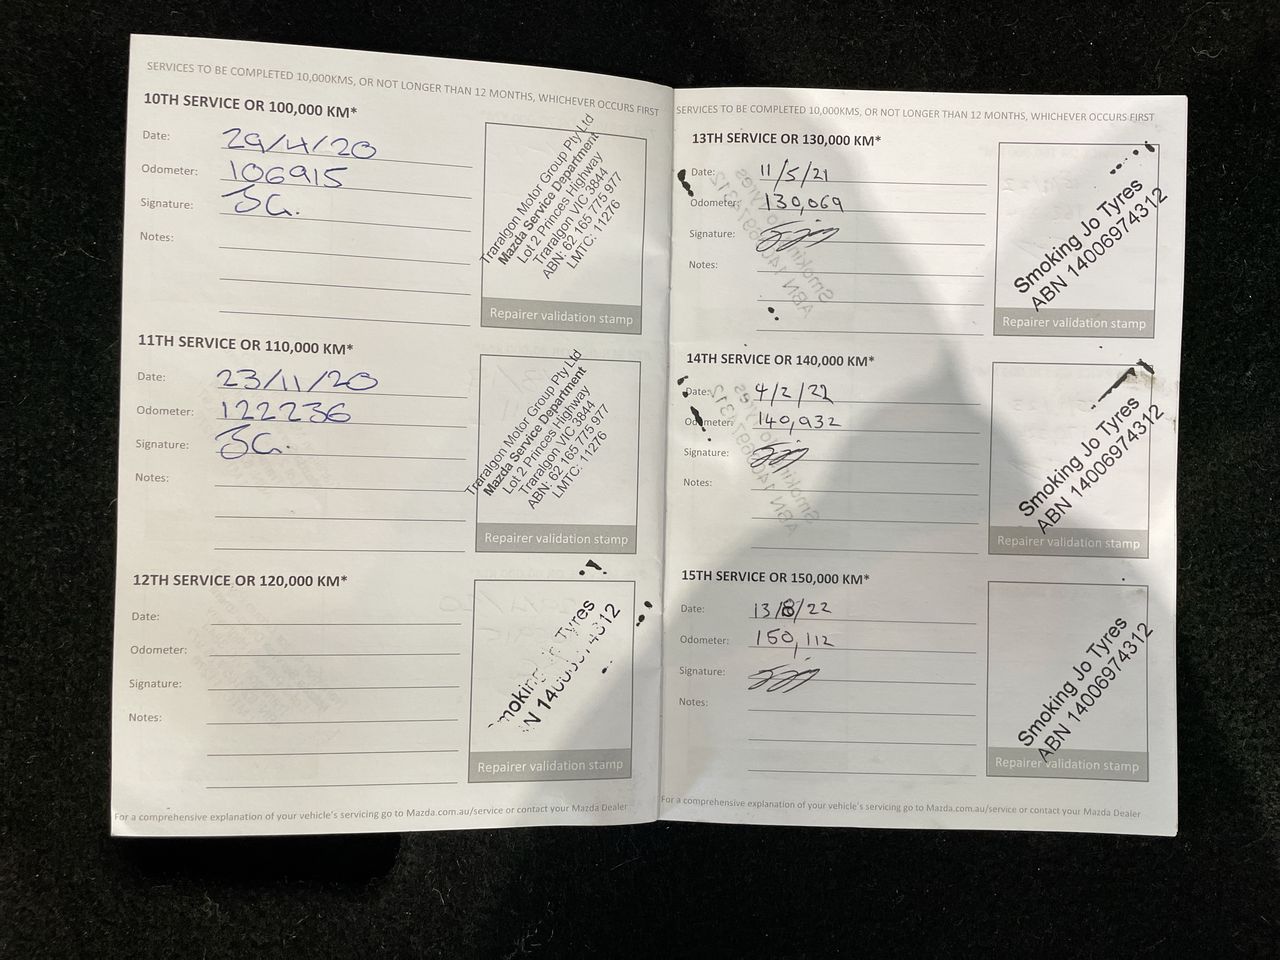 SERVICES TO BE COMPLETED 10,000KMS, OR NOT LONGER THAN 12 MONTHS, WHICHEVER OCCURS FIRST
10TH SERVICE OR 100,000 KM*
Date: 29/4/20
Odometer: 106915
Signature:
Notes:
Traralgon Motor Group Pty Ltd
Mazda Service Department
Lot 2 Princes Highway
Traralgon VIC 3844
ABN: 62 165 775 977
LMTC: 11276
Repairer validation stamp
11TH SERVICE OR 110,000 KM*
Date: 23/11/20
Odometer: 122236
Signature:
Notes:
Traralgon Motor Group Pty Ltd
Mazda Service Department
Lot 2 Princes Highway
Traralgon VIC 3844
ABN: 62 165 775 977
LMTC: 11276
Repairer validation stamp
12TH SERVICE OR 120,000 KM*
Date:
Odometer:
Signature:
Notes:
Smoking Jo Tyres
Repairer validation stamp
For a comprehensive explanation of your vehicle's servicing go to Mazda.com.au/service or contact your Mazda Dealer
SERVICES TO BE COMPLETED 10,000KMS, OR NOT LONGER THAN 12 MONTHS, WHICHEVER OCCURS FIRST
13TH SERVICE OR 130,000 KM*
Date: 11/5/21
Odometer: 130,069
Signature:
Notes:
Smoking Jo Tyres
ABN 14006974312
Repairer validation stamp
14TH SERVICE OR 140,000 KM*
Date: 4/2/22
Odometer: 140,932
Signature:
Notes:
Smoking Jo Tyres
ABN 14006974312
Repairer validation stamp
15TH SERVICE OR 150,000 KM*
Date: 13/8/22
Odometer: 150,112
Signature:
Notes:
Smoking Jo Tyres
ABN 14006974312
Repairer validation stamp
For a comprehensive explanation of your vehicle's servicing go to Mazda.com.au/service or contact your Mazda Dealer